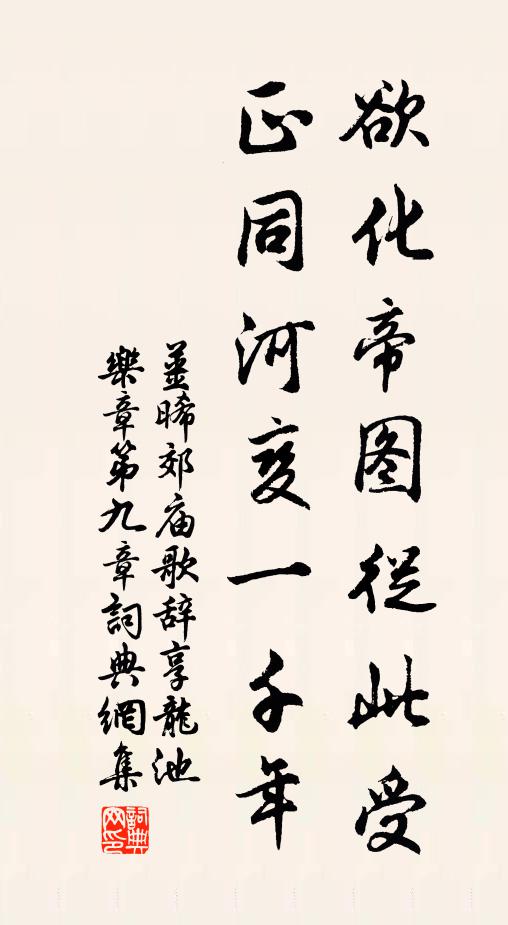 欲化帝图從此受
正同河变一千年
姜晞郊庙歌辞享龍池
樂章第九章詞典網集
詞典
网印